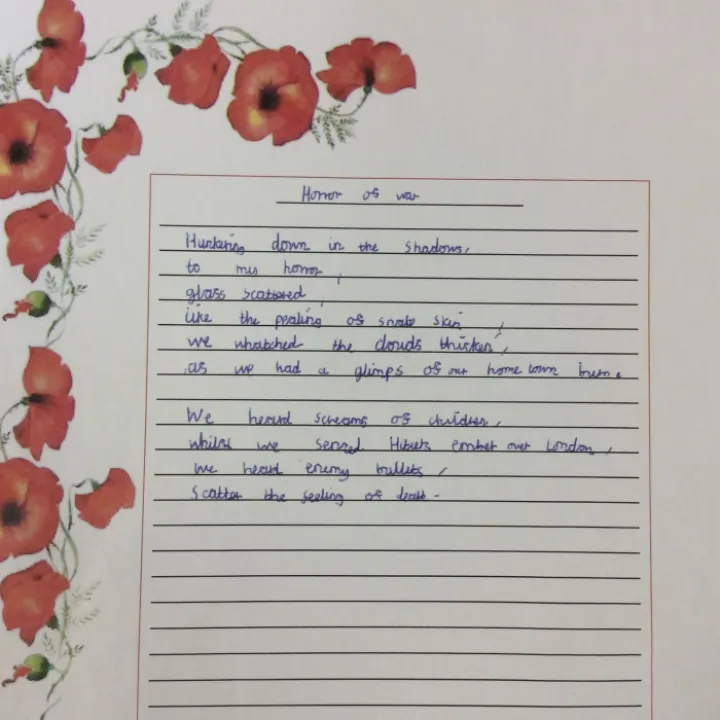 Horror of war
Hunkering down in the shadows,
to my horror,
glass scattered,
like the pealing of snake skin,
we whatched the clouds thicken,
as we had a glimps of our home town burn.
We heard screams of children,
whilst we sensed Hitlers ember over London,
we heard enemy bullets,
Scatter the feeling of death.